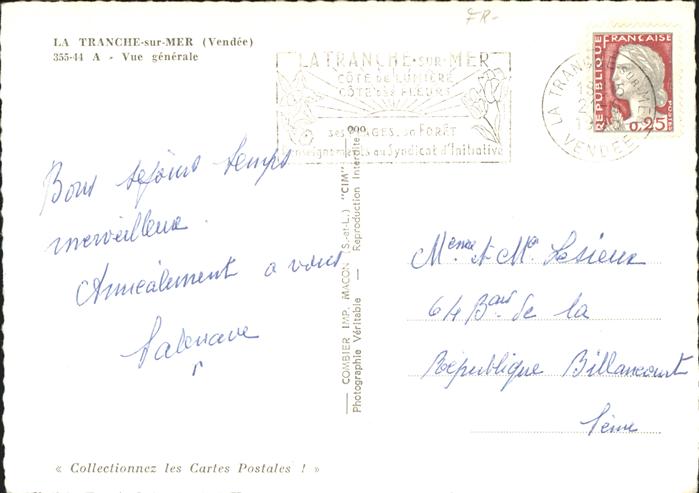 FR-
LA TRANCHE-sur-MER (Vendée)
355-44 A - Vue générale
LA TRANCHE-SUR-MER
CÔTE DE LUMIÈRE
CÔTE DES FLEURS
SES PLAGES, sa FORÊT
Renseignements au Syndicat d'Initiative
LA TRANCHE SUR MER
VENDÉE
REPUBLIQUE FRANÇAISE
0,25
Bons séjours temps
merveilleux.
Amicalement a vous
COMBIER IMP. MACON (S.-et-L.) "CIM"
Photographie Véritable — Reproduction Interdite
Meme et Mr Lesieux
64 Bard de la
République Billancourt
Seine
« Collectionnez les Cartes Postales ! »